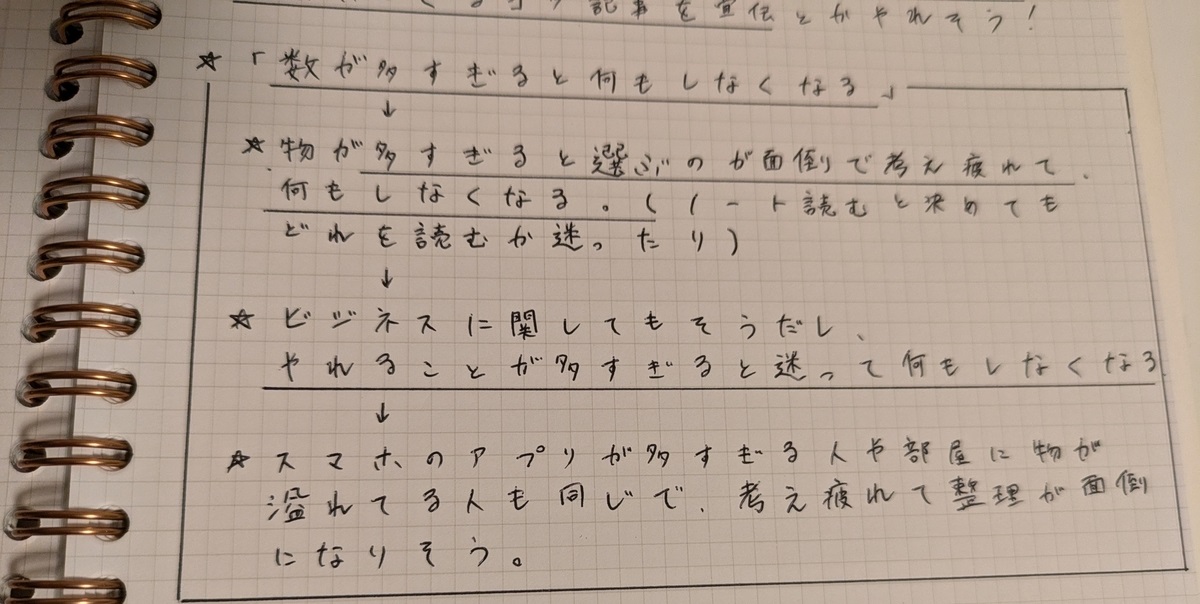 記事を宣伝とかやれそう!
☆「数が多すぎると何もしなくなる」
↓
☆物が多すぎると選ぶのが面倒りで考え疲れて、
何もしなくなる。(ノート読むと決めても
どれを読むか迷ったり)
↓
☆ビジネスに関してもそうだし、
やれることが多すぎると迷って何もしなくなる
↓
☆スマホのアプリが多すぎる人や部屋に物が
溢れてる人も同じで、考え疲れて整理が面倒
になりそう。